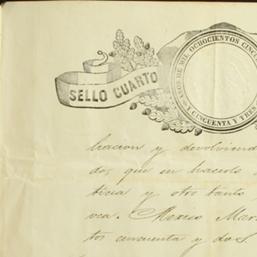 SELLO CUARTO
AÑOS DE MIL OCHOCIENTOS CINCU
Y CINCUENTA Y TRES
bracion y devolviend
dos, que en hacerlo
ticia y otro tanto
rea. Mexico Mar
tos cincuenta y dos